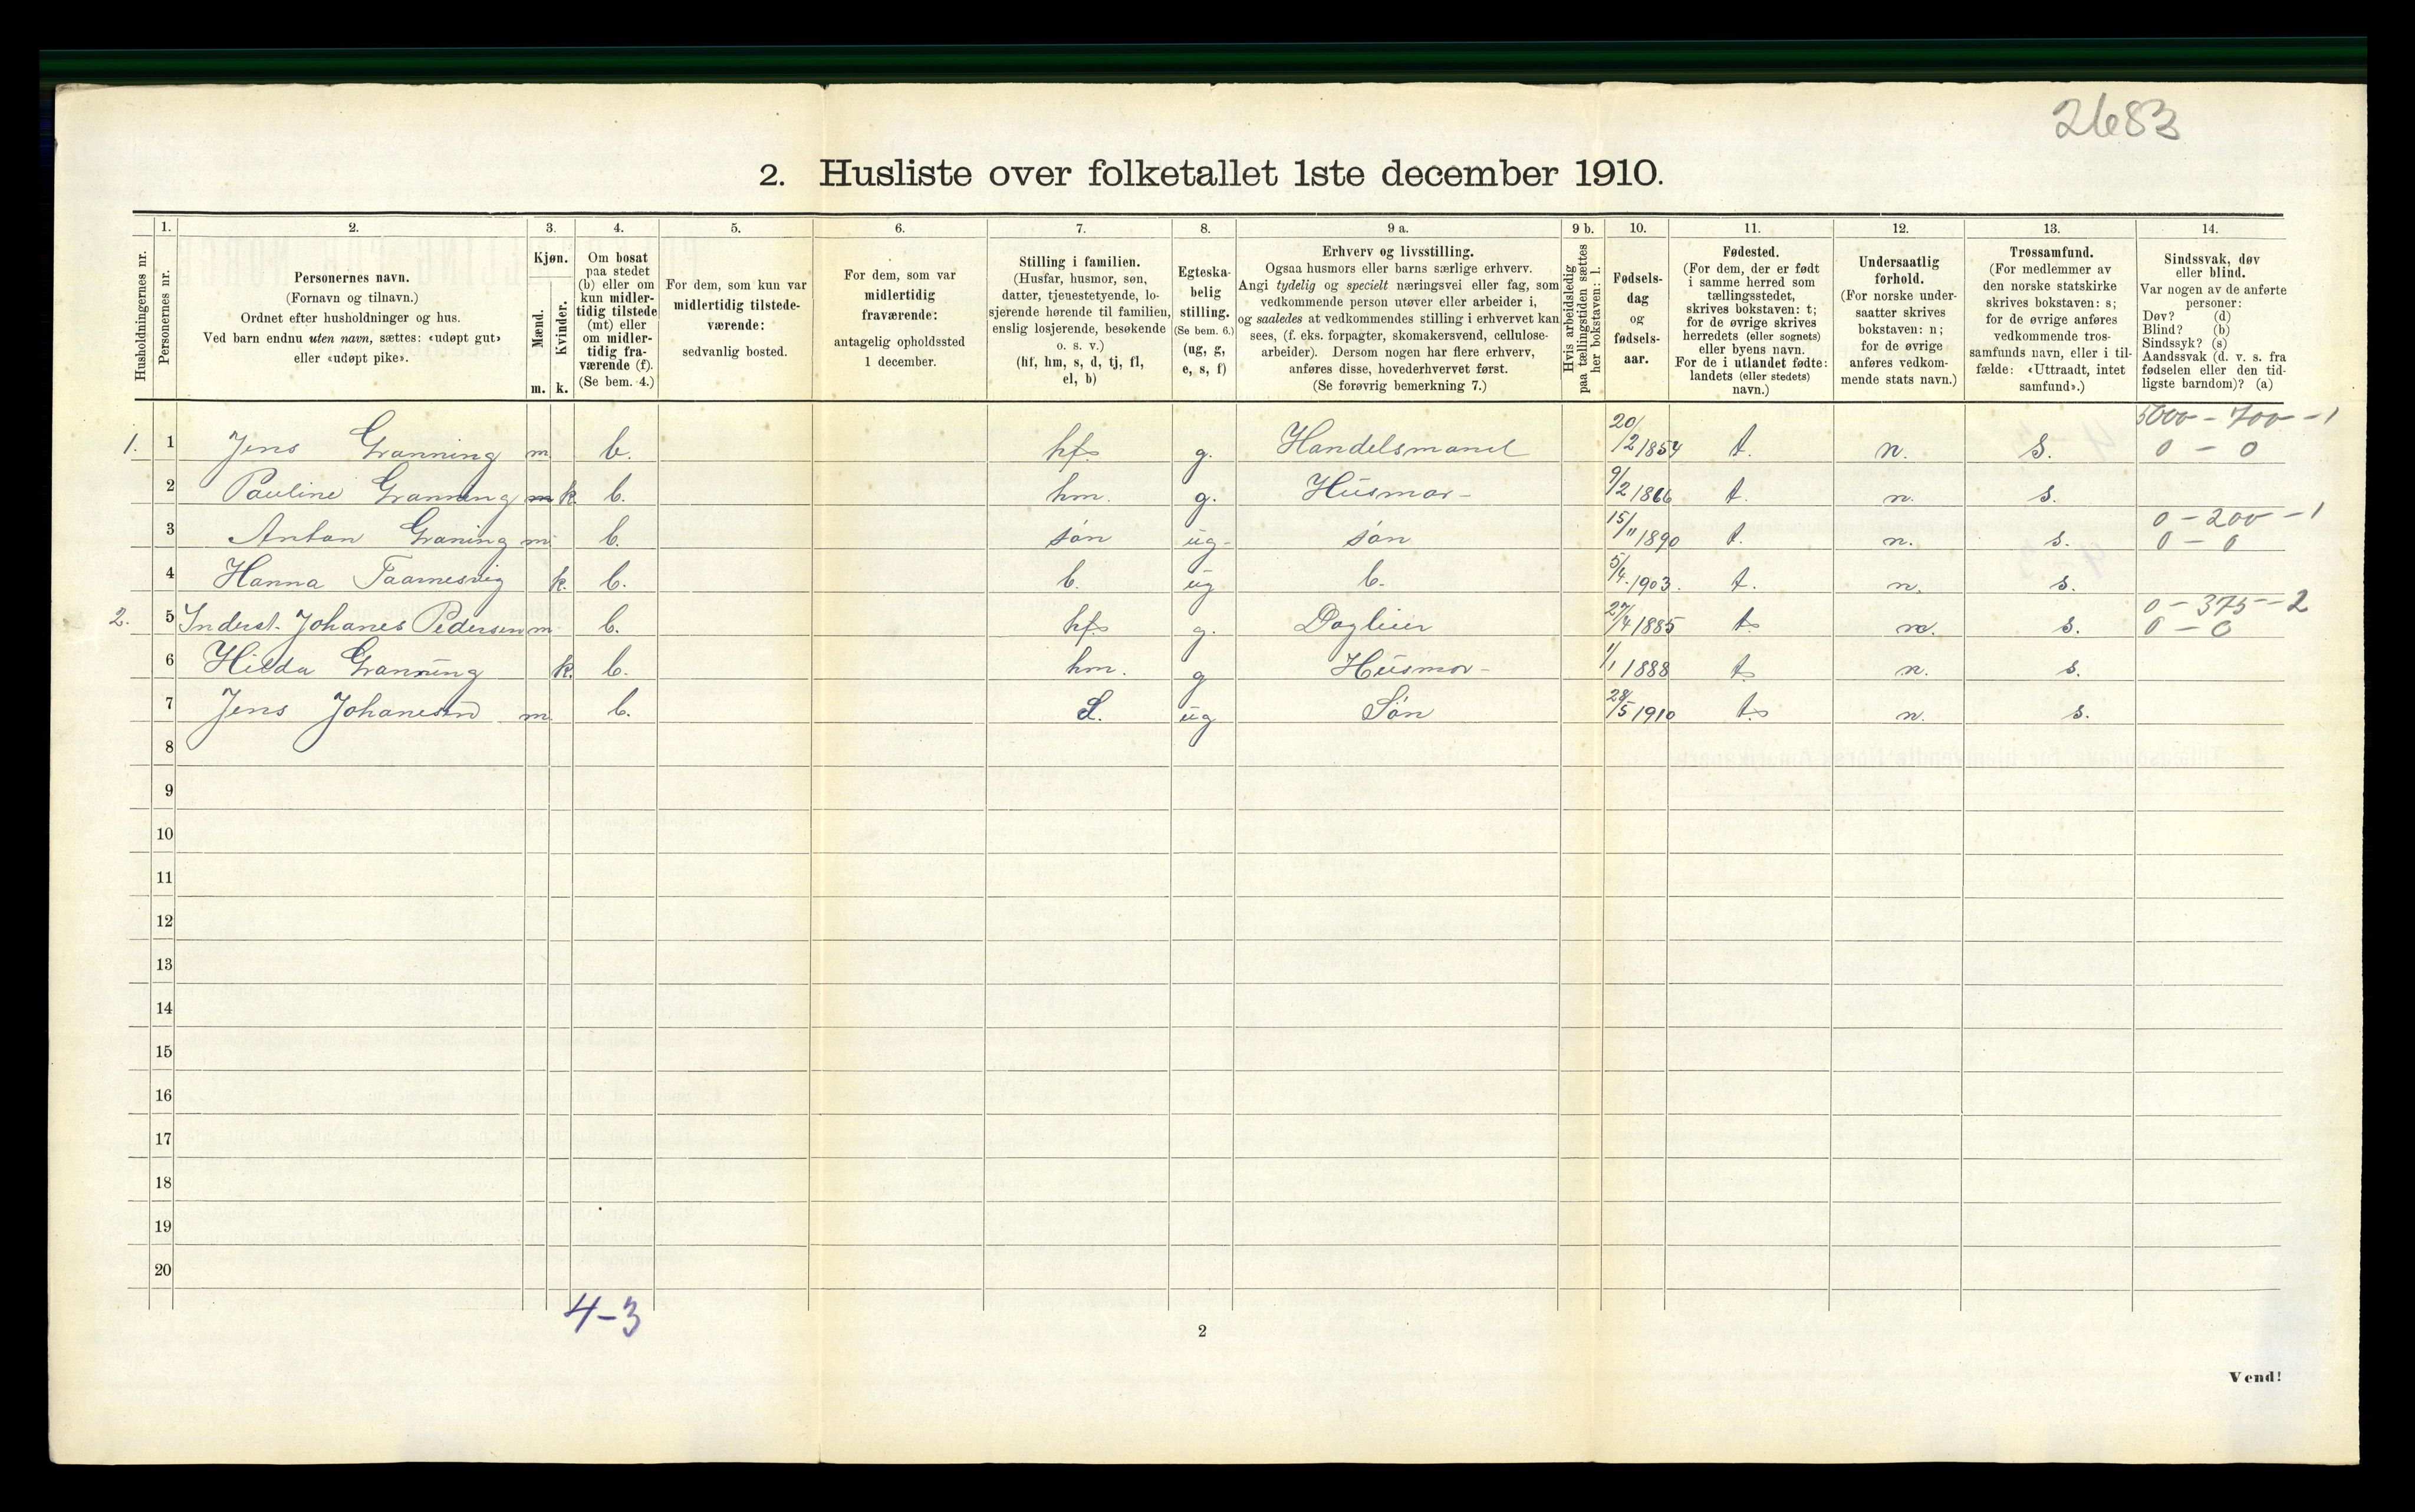 2683
2. Husliste over folketallet 1ste december 1910.
1. 2. 3. 4. 5. 6. 7. 8. 9 a. 9 b. 10. 11. 12. 13. 14.
Husholdningernes nr.
Personernes nr.
Personernes navn.
(Fornavn og tilnavn.)
Ordnet efter husholdninger og hus.
Ved barn endnu uten navn, sættes: «udøpt gut»
eller «udøpt pike».
Kjøn.
Mænd.
Kvinder.
m. k.
Om bosat
paa stedet
(b) eller om
kun midler-
tidig tilstede
(mt) eller
om midler-
tidig fra-
værende (f).
(Se bem. 4.)
For dem, som kun var
midlertidig tilstede-
værende:
sedvanlig bosted.
For dem, som var
midlertidig
fraværende:
antagelig opholdssted
1 december.
Stilling i familien.
(Husfar, husmor, søn,
datter, tjenestetyende, lo-
sjerende hørende til familien,
enslig losjerende, besøkende
o. s. v.)
(hf, hm, s, d, tj, fl,
el, b)
Egteska-
belig
stilling.
(Se bem. 6.)
(ug, g,
e, s, f)
Erhverv og livsstilling.
Ogsaa husmors eller barns særlige erhverv.
Angi tydelig og specielt næringsvei eller fag, som
vedkommende person utøver eller arbeider i,
og saaledes at vedkommendes stilling i erhvervet kan
sees, (f. eks. forpagter, skomakersvend, cellulose-
arbeider). Dersom nogen har flere erhverv,
anføres disse, hovederhvervet først.
(Se forøvrig bemerkning 7.)
Hvis arbeidsledig
paa tællingstiden sættes
her bokstaven: l.
Fødsels-
dag
og
fødsels-
aar.
Fødested.
(For dem, der er født
i samme herred som
tællingsstedet,
skrives bokstaven: t;
for de øvrige skrives
herredets (eller sognets)
eller byens navn.
For de i utlandet fødte:
landets (eller stedets)
navn.)
Undersaatlig
forhold.
(For norske under-
saatter skrives
bokstaven: n;
for de øvrige
anføres vedkom-
mende stats navn.)
Trossamfund.
(For medlemmer av
den norske statskirke
skrives bokstaven: s;
for de øvrige anføres
vedkommende tros-
samfunds navn, eller i til-
fælde: «Uttraadt, intet
samfund».)
Sindssvak, døv
eller blind.
Var nogen av de anførte
personer:
Døv? (d)
Blind? (b)
Sindssyk? (s)
Aandssvak (d. v. s. fra
fødselen eller den tid-
ligste barndom)? (a)
5000 - 700 - 1
1. 1 Jens Granning m b. hf. g. Handelsmand 20/2 1854 t. n. s. 0 - 0
2 Pauline Granning m k b. hm. g. Husmor - 9/2 1866 t. n. s.
0 - 200 - 1
3 Anton Graning m b. søn ug - søn 15/11 1890 t. n. s. 0 - 0
4 Hanna k. b. b. ug b. 5/4 1903. t. n. s.
0 - 375 - 2
2. 5 Inderst. Johanes Pedersen m b. hf. g. 27/4 1885 t. n. s. 0 - 0
6 Hilda Granning k. b. hm. g Husmor - 1/1 1888 t. n. s.
7 Jens Johanesen m b. S. ug Søn 28/5 1910 t. n. s.
8
9
10
11
12
13
14
15
16
17
18
19
20
4-3
2
Vend!